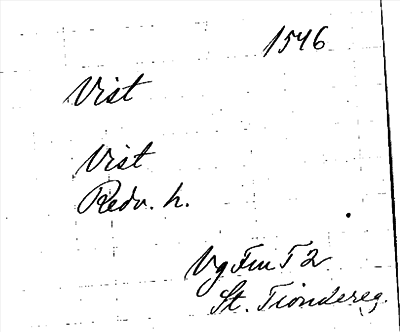 1546
Vist
Vist
Redv. h.
Vg Fm T 2
St. Tiondereg.